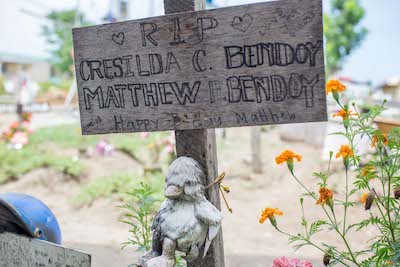 ♡ RIP ♡
CRESILDA C. BENDOY
MATTHEW P. BENDOY
Happy Matthew